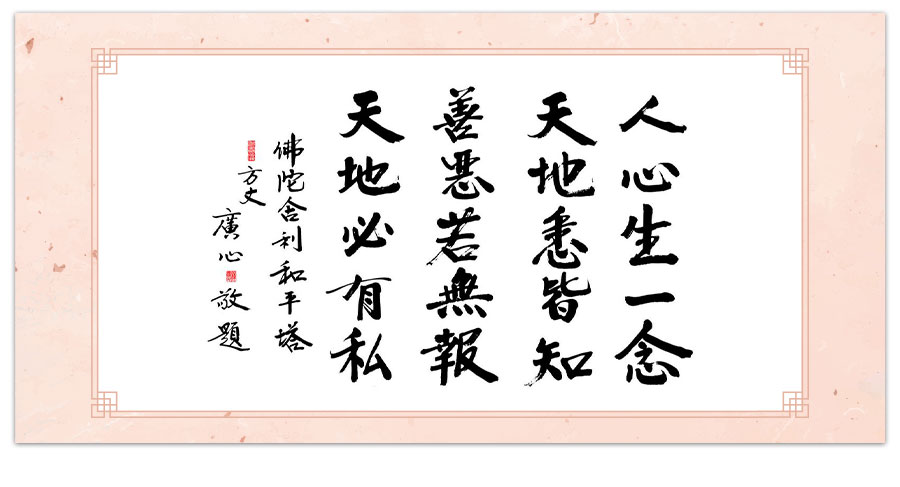 人心生一念
天地悉皆知
善惡若無報
天地必有私
佛陀舍利和平塔
方丈
廣心敬題